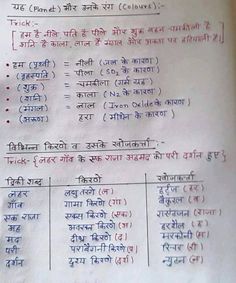 ग्रह (Planet) और उनके रंग (Colours) :-
Trick:-
[ हम है नीले पति है पीले और शुक्र बहन चमकीली है
शनि है काला, लाल है मंगल और अरुण पर हरियाली है ]
• हम (पृथ्वी) = नीली (जल के कारण)
• (बृहस्पति) = पीला (SO₂ के कारण)
• (शुक्र) = चमकीला (गर्म ग्रह)
• (शनि) = काला (N₂ के कारण)
• (मंगल) = लाल (Iron Oxide के कारण)
• (अरुण) = हरा (मीथेन के कारण)
विभिन्न किरणे व उसके खोजकर्ता :-
Trick- { लहर गाँव के एक राजा अहमद की परी दर्शन हुए }
ट्रिकी शब्द किरणे खोजकर्ता
लहर लघु तरंगे (ल) हर्ट्ज (हर)
गाँव गामा किरणे (गा) बैकुरल (व)
एक राजा एक्स किरणे (एक्स) राएन्टजन (राजा)
अह अवरक्त किरणे (अ) हरशैल (ह)
मद दीर्घ किरणे (द) मारकोनी (म)
परी पराबैंगनी किरणे (प) रिटर (री)
दर्शन दृश्य किरणे (दर्श) न्यूटन (न)